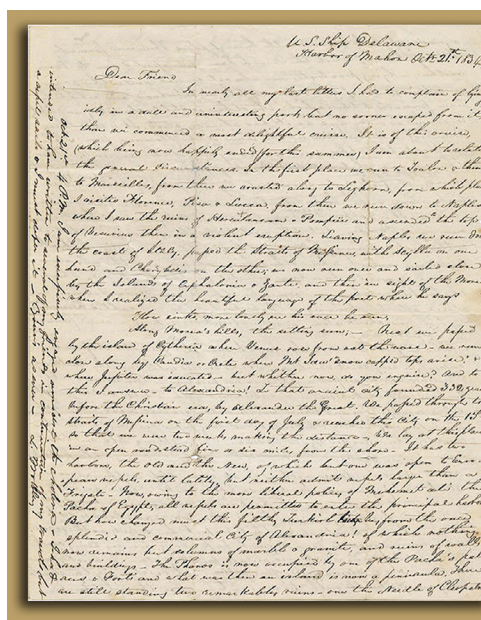 U. S. Ship Delaware
Harbor of Mahon Oct. 21st. 1834
Dear Friend
In nearly all my last letters I had to complain of
in a dull and uninteresting port but no sooner escaped from it
than we commenced a most delightful cruise. It is of this cruise,
(which being now happily ended for the summer) I am about to relate
the general circumstances. In the first place we run to Toulon & then
to Marseilles, from there we coasted along to Leghorn, from which place
I visited Florence, Pisa & Lucca, from there we run down to Naples
where I saw the ruins of Herculaneum & Pompeii and ascended the top
of Vesuvius then in a violent eruption. Leaving Naples we run down
the coast of Italy, passed the Straits of Messina with Scylla on one
hand and Charybdis on the other, we now run over and sailed close
by the Islands of Cephalonia & Zante, and then in sight of the Morea
where I realized the beautiful language of the poet where he says
Slow sinks, more lovely ere his race be run,
Along Morea's hills, the setting sun, — Next we passed
by the island of Cytherea where Venus rose from out the wave - we run
close along by Candia or Crete where Mt Ida's snow capped top arises, &
where Jupiter was
 but whither now, do you inquire? And to
this I answer to Alexandria! In that ancient city founded 332 years
before the Christian era, by Alexander the Great. We passed through the
Straits of Messina on the first day of July & reached this city on the 13th
so that we were two weeks making the distance. We lay at this place
in an open roadsted five or six miles from the shore. It has two
harbors, the Old and the New, of which but one was open to
vessels, until lately, but neither admits vessels larger than a
Frigate. Now, owing to the more liberal policy of Mahomet Ali the
Pacha of Egypt, all vessels are permitted to enter the principal harbor
But how changed must this filthy Turkish be, from the once
splendid and commercial City of Alexandria! of which nothing
now remains but columns of marble & granite, and ruins of walls
and buildings. The Pharos is now occupied by one of the Pacha's
& Forts and what was then an island is now a peninsula. There
are still standing two remarkable ruins - one the Needle of Cleopatra
Oct 21st 4 P.M.